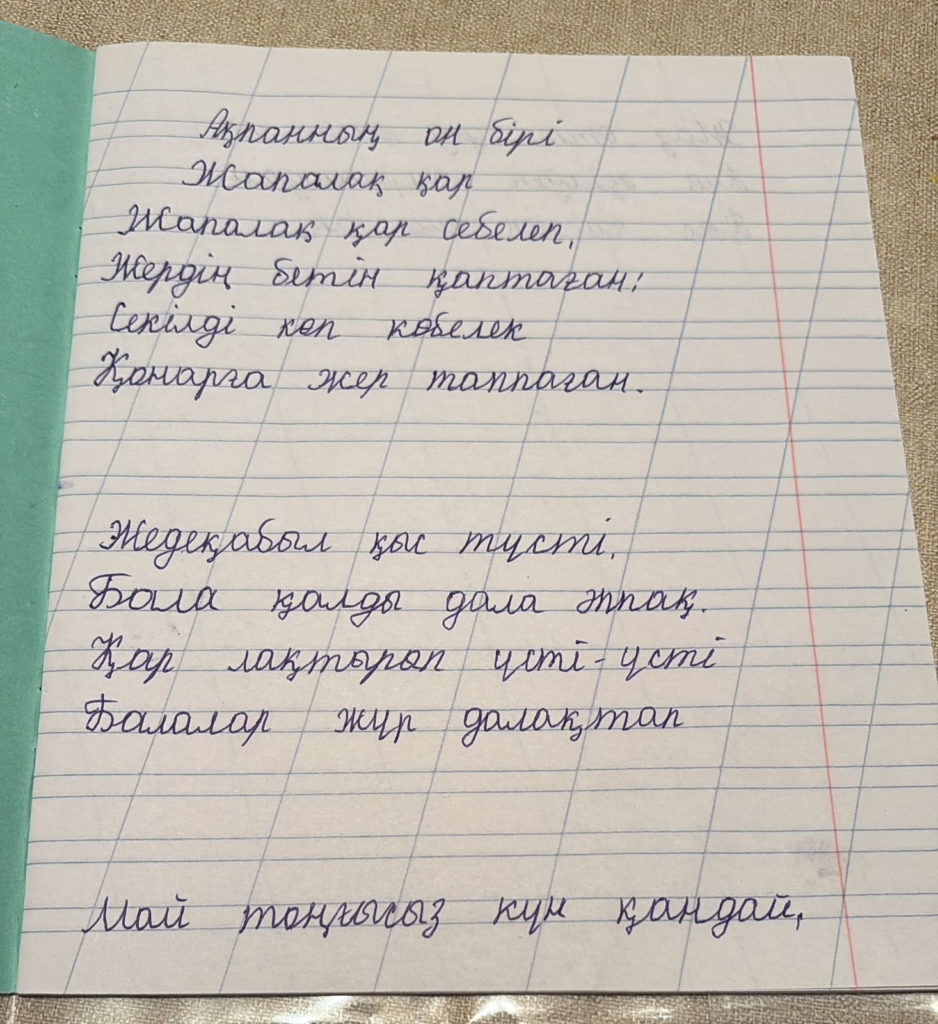 Ақпанның он бірі
Жапалақ қар
Жапалақ қар себелеп,
Жердің бетін қаптаған:
Секілді көп көбелек
Қонарға жер таппаған.
Жедеқабыл қыс түсті,
Бола қалды дала әппақ.
Қар лақтырып үсті-үсті
Балалар жүр далақтап
Май тоңғысыз күн қандай,